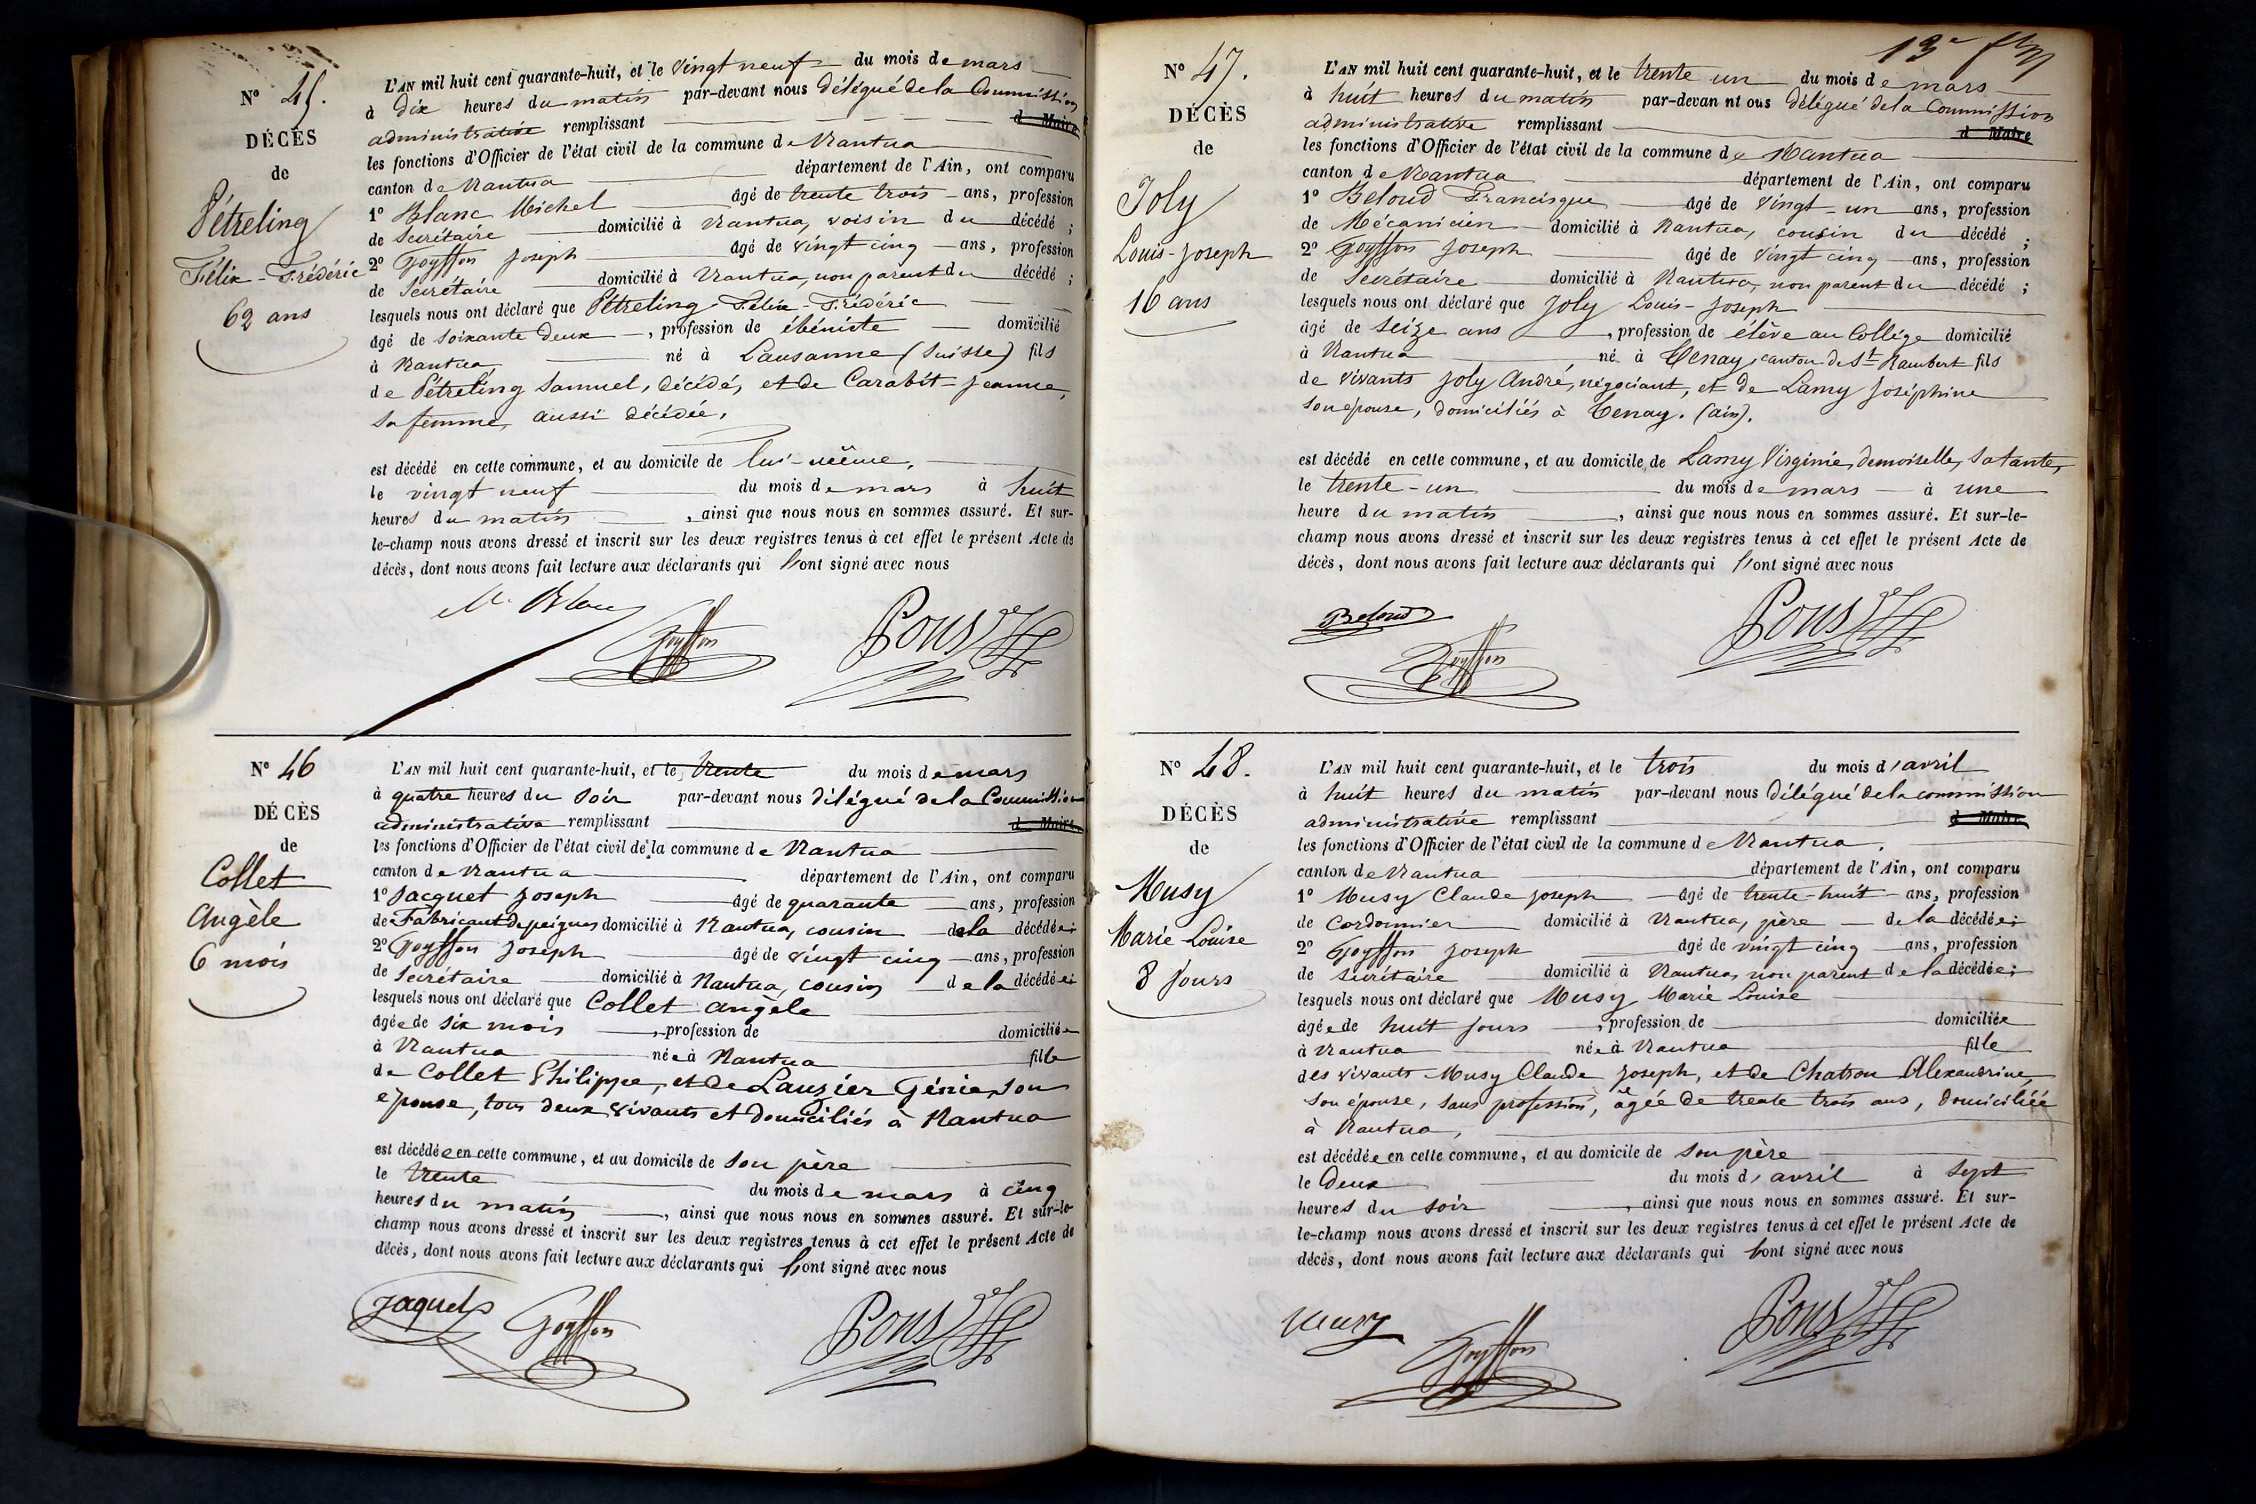 N° 45.
DÉCÈS
de
Pétreling
Félix-Frédéric
62 ans
L'AN mil huit cent quarante-huit, et le vingt neuf du mois de mars
à dix heures du matin par-devant nous délégué de la Commission
administrative remplissant d Maire
les fonctions d'Officier de l'état civil de la commune de Nantua
canton de Nantua département de l'Ain, ont comparu
1° Blanc Michel âgé de trente trois ans, profession
de Secrétaire domicilié à Nantua, voisin du décédé ;
2° Goyffon Joseph âgé de vingt cinq ans, profession
de Secrétaire domicilié à Nantua, non parent du décédé ;
lesquels nous ont déclaré que Pétreling Félix-Frédéric
âgé de soixante deux , profession de ébéniste domicilié
à Nantua né à Lausanne (Suisse) fils
de Pétreling Samuel, décédé, et de Carabit Jeanne,
sa femme, aussi décédée,
est décédé en cette commune, et au domicile de lui-même,
le vingt neuf du mois de mars à huit
heures du matin , ainsi que nous nous en sommes assuré. Et sur-
le-champ nous avons dressé et inscrit sur les deux registres tenus à cet effet le présent Acte de
décès, dont nous avons fait lecture aux déclarants qui l'ont signé avec nous
M. Blanc Goyffon Pons
N° 46
DÉCÈS
de
Collet
Angèle
6 mois
L'AN mil huit cent quarante-huit, et le trente du mois de mars
à quatre heures du soir par-devant nous délégué de la Commission
administrative remplissant d Maire
les fonctions d'Officier de l'état civil de la commune de Nantua
canton de Nantua département de l'Ain, ont comparu
1° Jacquet Joseph âgé de quarante ans, profession
de Fabricant de peignes domicilié à Nantua, cousin de la décédée ;
2° Goyffon Joseph âgé de vingt cinq ans, profession
de Secrétaire domicilié à Nantua, cousin de la décédée ;
lesquels nous ont déclaré que Collet Angèle
âgée de six mois , profession de domiciliée
à Nantua née à Nantua fille
de Collet Philippe, et de Lauzier Génie, son
épouse, tous deux vivants et domiciliés à Nantua
est décédée en cette commune, et au domicile de son père
le trente du mois de mars à cinq
heures du matin , ainsi que nous nous en sommes assuré. Et sur-le-
champ nous avons dressé et inscrit sur les deux registres tenus à cet effet le présent Acte de
décès, dont nous avons fait lecture aux déclarants qui l'ont signé avec nous
Jaquet Goyffon Pons
13e
N° 47.
DÉCÈS
de
Joly
Louis-Joseph
16 ans
L'AN mil huit cent quarante-huit, et le trente un du mois de mars
à huit heures du matin par-devan nt ous délégué de la Commission
administrative remplissant d Maire
les fonctions d'Officier de l'état civil de la commune de Nantua
canton de Nantua département de l'Ain, ont comparu
1° Beloud Francisque âgé de vingt-un ans, profession
de Mécanicien domicilié à Nantua, cousin du décédé ;
2° Goyffon Joseph âgé de vingt cinq ans, profession
de Secrétaire domicilié à Nantua, non parent du décédé ;
lesquels nous ont déclaré que Joly Louis-Joseph
âgé de seize ans , profession de élève au Collége domicilié
à Nantua né à Tenay, canton de St Rambert fils
de vivants Joly André, négociant, et de Lamy Joséphine
son épouse, domiciliés à Tenay. (ain).
est décédé en cette commune, et au domicile de Lamy Virginie, demoiselle, sa tante,
le trente-un du mois de mars à une
heure du matin , ainsi que nous nous en sommes assuré. Et sur-le-
champ nous avons dressé et inscrit sur les deux registres tenus à cet effet le présent Acte de
décès, dont nous avons fait lecture aux déclarants qui l'ont signé avec nous
Beloud Goyffon Pons
N° 48.
DÉCÈS
de
Musy
Marie Louise
8 jours
L'AN mil huit cent quarante-huit, et le trois du mois d'avril
à huit heures du matin par-devant nous délégué de la commission
administrative remplissant d Maire
les fonctions d'Officier de l'état civil de la commune de Nantua.
canton de Nantua département de l'Ain, ont comparu
1° Musy Claude Joseph âgé de trente-huit ans, profession
de Cordonnier domicilié à Nantua, père de la décédée ;
2° Goyffon Joseph âgé de vingt cinq ans, profession
de secrétaire domicilié à Nantua, non parent de la décédée ;
lesquels nous ont déclaré que Musy Marie Louise
âgée de huit jours , profession de domiciliée
à Nantua née à Nantua fille
des vivants Musy Claude Joseph, et de Chatron Alexandrine,
son épouse, sans profession, âgée de trente trois ans, domiciliée
à Nantua,
est décédée en cette commune, et au domicile de son père
le deux du mois d'avril à sept
heures du soir , ainsi que nous nous en sommes assuré. Et sur-
le-champ nous avons dressé et inscrit sur les deux registres tenus à cet effet le présent Acte de
décès, dont nous avons fait lecture aux déclarants qui l'ont signé avec nous
Musy Goyffon Pons